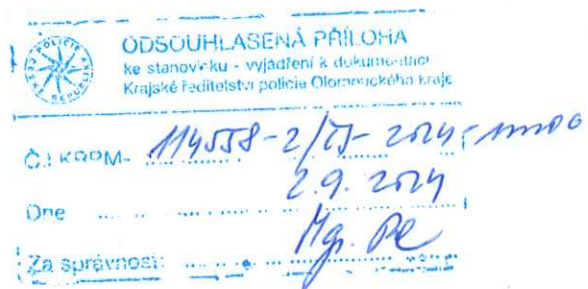 POLICIE
ČESKÉ REPUBLIKY
ODSOUHLASENÁ PŘÍLOHA
ke stanovisku - vyjádření k dokumentaci
Krajské ředitelství policie Olomouckého kraje
Č.j. KRPM- 114558-2/ČJ-2024-
Dne 2.9.2024
Za správnost: Mgr.